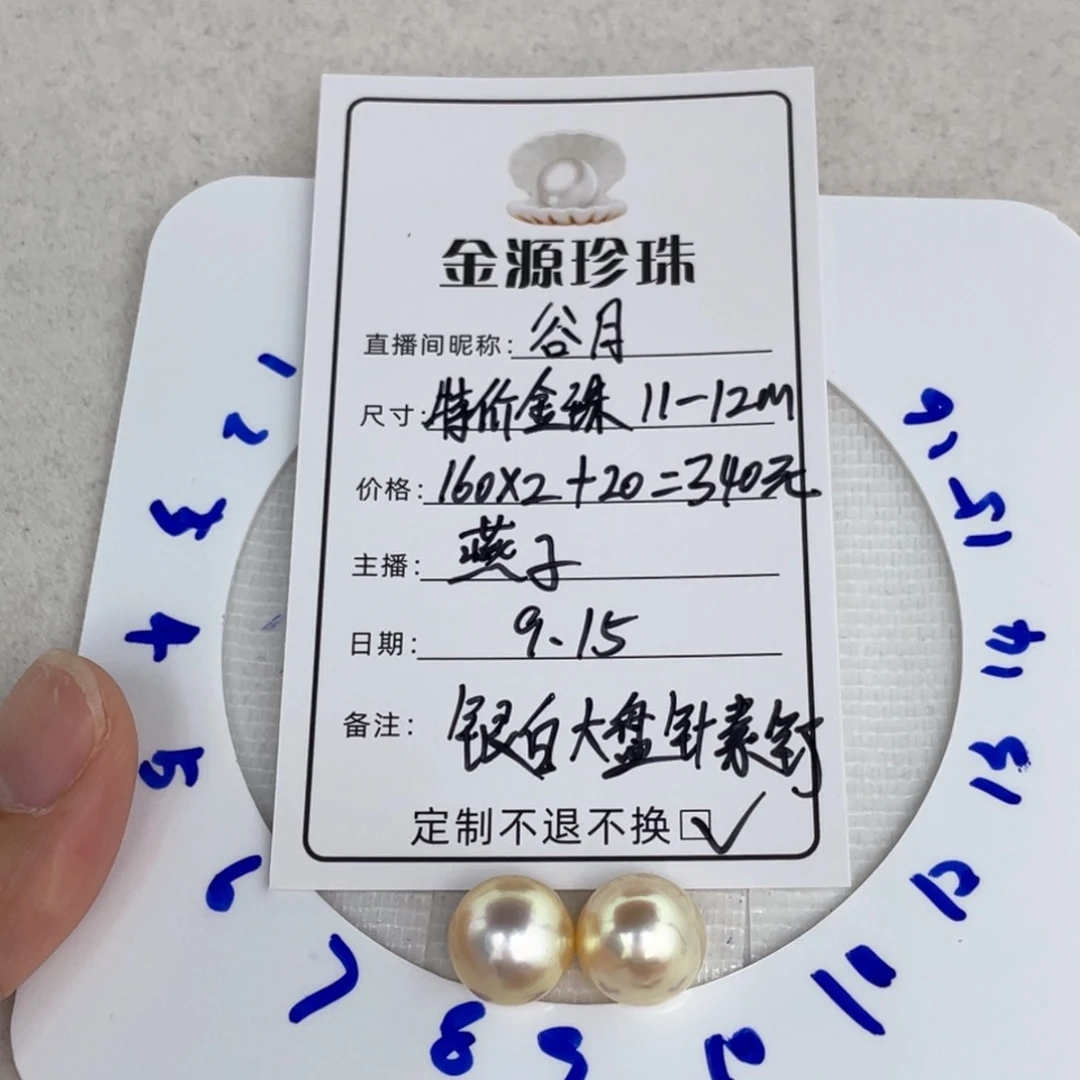 金源珍珠
直播间昵称: 谷月
尺寸: 特价金珠 11-12m
价格: 160x2+20=340元
主播: 燕子
日期: 9.15
备注: 银白大盘针素钉
定制不退不换☑
1
2
3
4
5
6
7
8
9
10
11
12
13
14
15
16